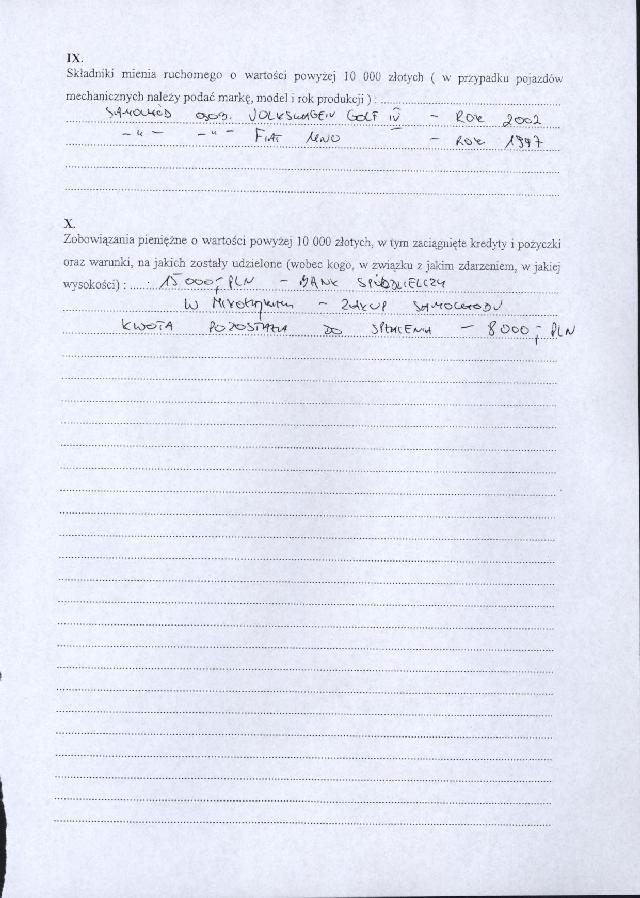 IX.
Składniki mienia ruchomego o wartości powyżej 10 000 złotych ( w przypadku pojazdów
mechanicznych należy podać markę, model i rok produkcji ) :
SAMOCHÓD OSOB. VOLKSWAGEN GOLF IV - ROK 2002
-"- -"- FIAT UNO - ROK 1997
X.
Zobowiązania pieniężne o wartości powyżej 10 000 złotych, w tym zaciągnięte kredyty i pożyczki
oraz warunki, na jakich zostały udzielone (wobec kogo, w związku z jakim zdarzeniem, w jakiej
wysokości) : 15 000,- PLN - BANK SPÓŁDZIELCZY
W - ZAKUP SAMOCHODU
KWOTA POZOSTAŁA DO SPŁACENIA - 8 000,- PLN